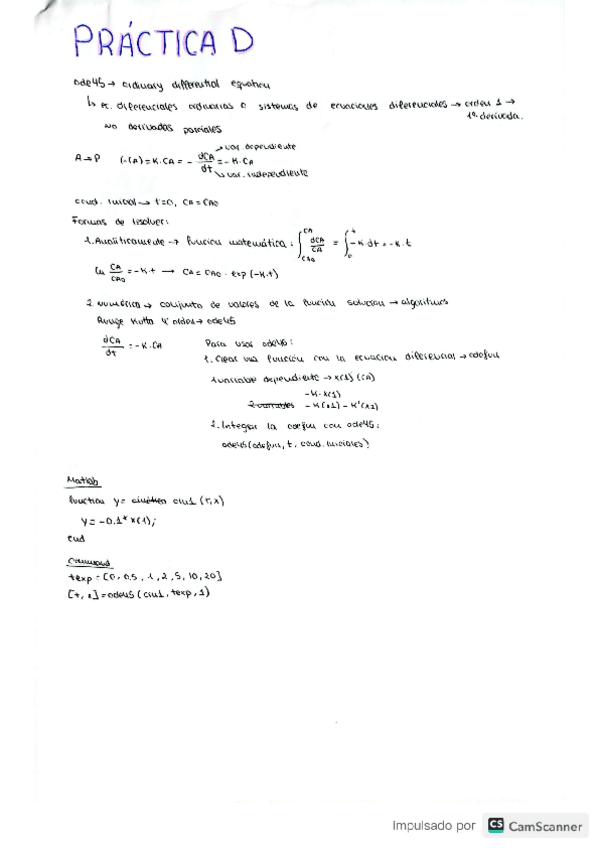 PRÁCTICA D
ode45 → ordinary differential equation
↳ ec. diferenciales ordinarias o sistemas de ecuaciones diferenciales → orden 1 →
1ª derivada.
no derivadas parciales
→ var dependiente
A → P (-rA) = K·CA = - dCA/dt = -K·CA
↳ var. independiente
cond. inicial → t=0, CA = CA0
Formas de resolver:
1. Analíticamente → función matemática: ∫CA0^CA dCA/CA = ∫0^t -K·dt = -K·t
Ln CA/CA0 = -K·t → CA = CA0 · exp(-K·t)
2. numérica → conjunto de valores de la función solución → algoritmos
Runge Kutta 4º orden → ode45
dCA/dt = -K·CA
Para usar ode45:
1. Crear una función con la ecuación diferencial → odefun
1 variable dependiente → x(1) (CA)
-K·x(1)
2 variables -K(x1) - K'(x2)
2. Integrar la odefun con ode45:
ode45(odefun, t, cond. iniciales)
Matlab
function y = cinética cin1 (t,x)
y = -0.1* x(1);
end
Command
texp = [0, 0.5, 1, 2, 5, 10, 20]
[t, x] = ode45 (cin1, texp, 1)
Impulsado por CS CamScanner